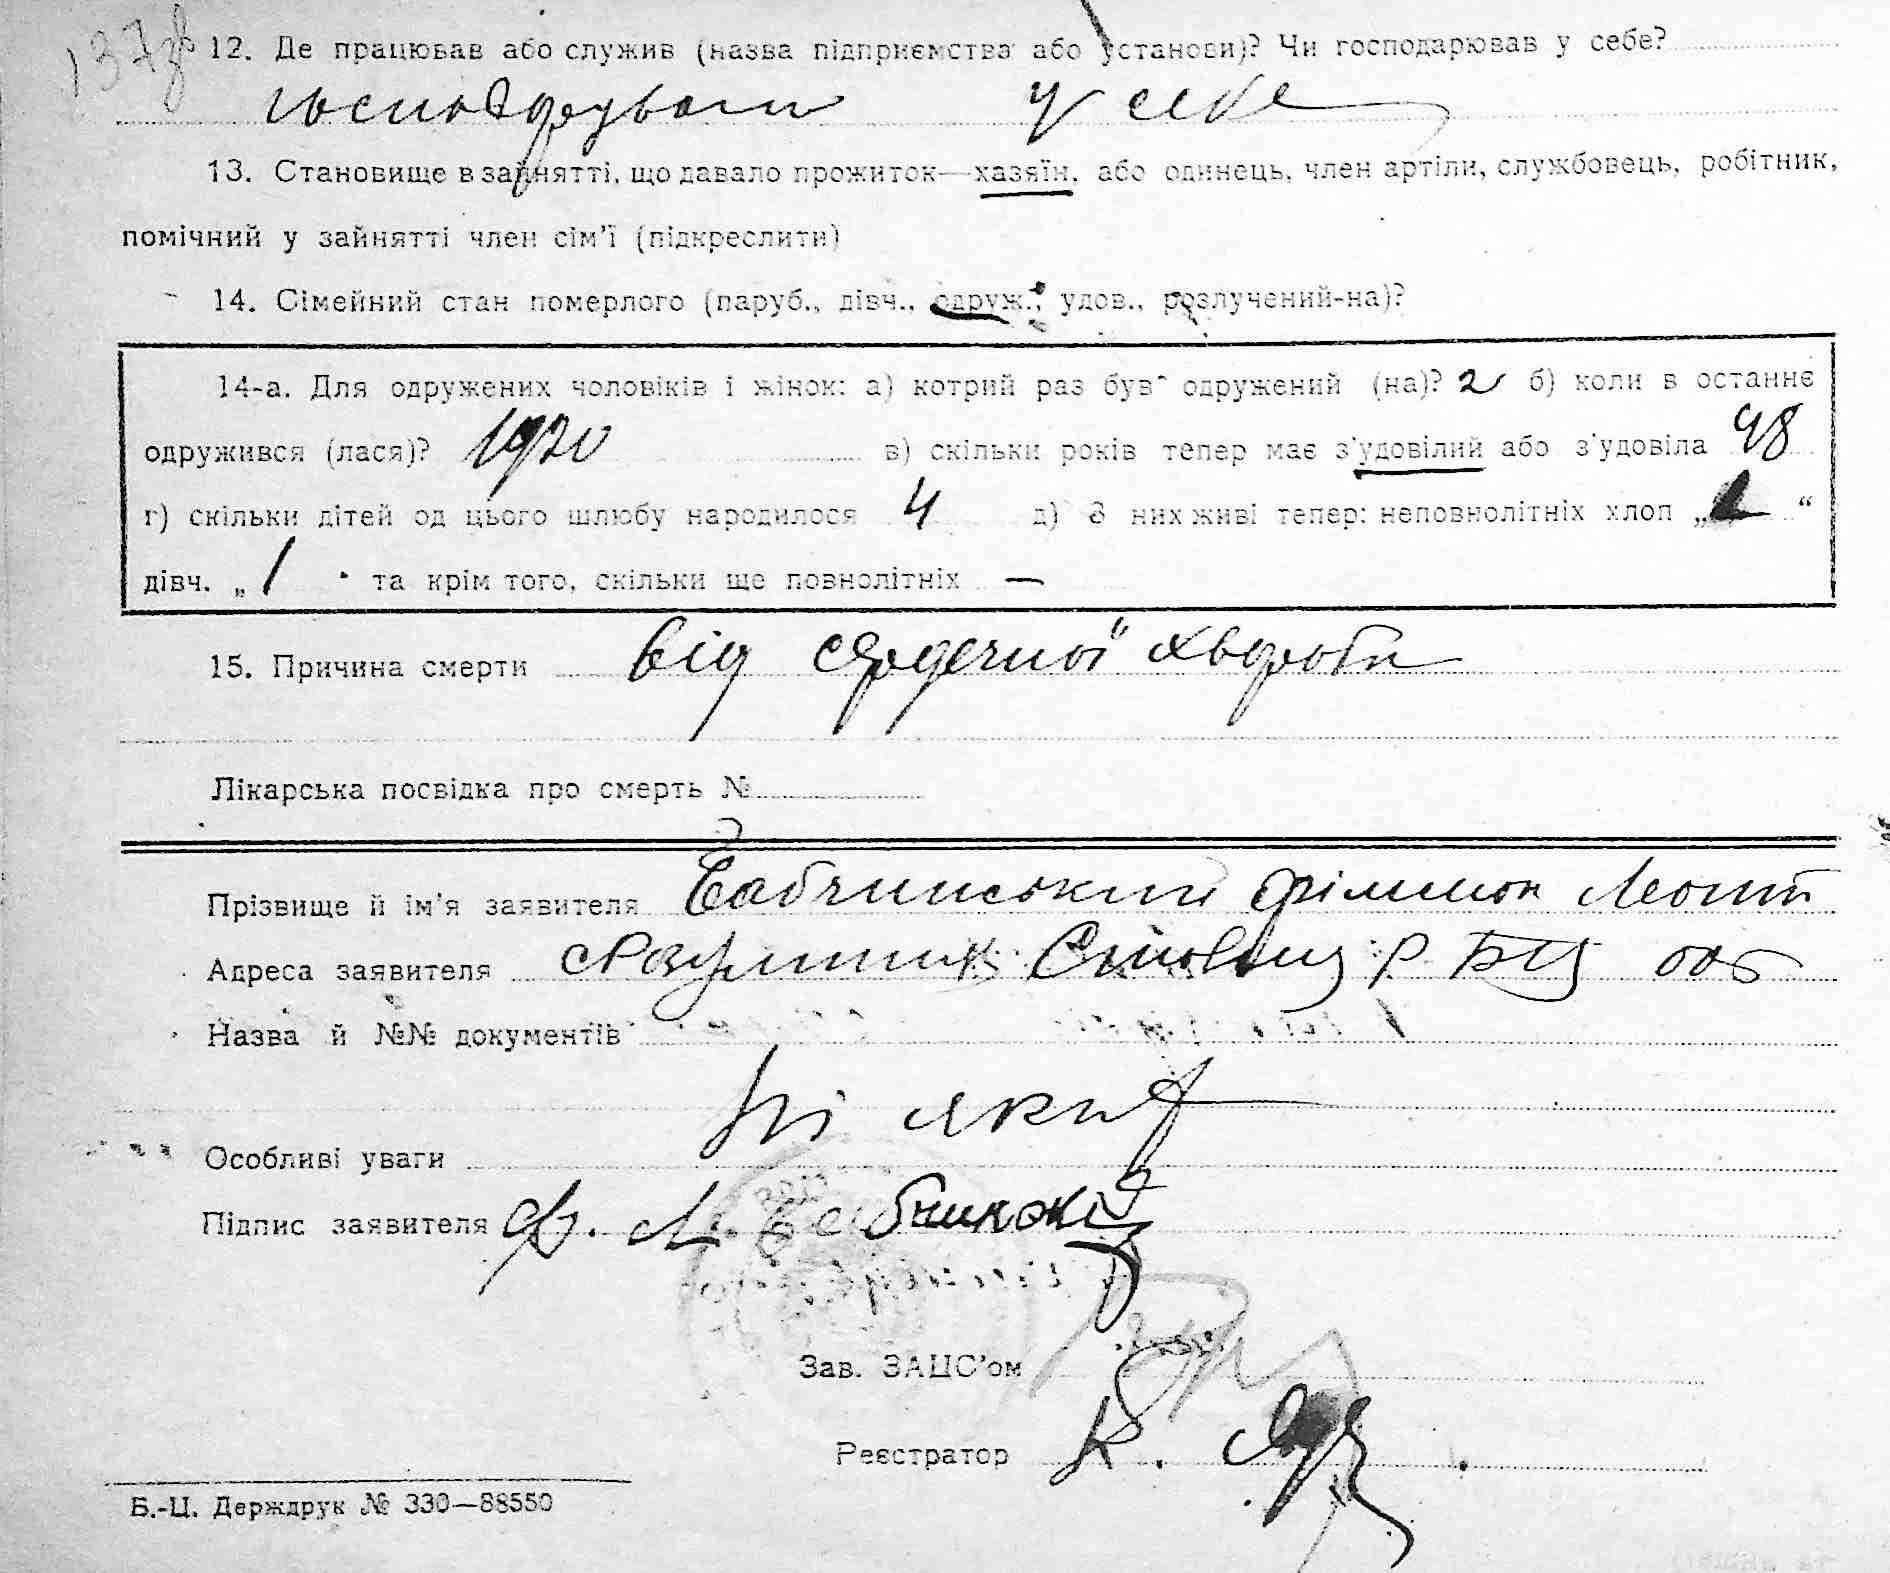 137зв
12. Де працював або служив (назва підприємства або установи)? Чи господарював у себе?
господарував у себе
13. Становище в зайнятті, що давало прожиток—хазяїн, або одинець, член артіли, службовець, робітник,
помічний у зайнятті член сім'ї (підкреслити)
14. Сімейний стан померлого (паруб., дівч., одруж., удов., розлучений-на)?
14-а. Для одружених чоловіків і жінок: а) котрий раз був одружений (на)? 2 б) коли в останнє
одружився (лася)? 1920 в) скільки років тепер має з'удовілий або з'удовіла 48
г) скільки дітей од цього шлюбу народилося 4 д) З них живі тепер: неповнолітніх хлоп „ “
дівч. „ 1 та крім того, скільки ще повнолітніх —
15. Причина смерти від сердечної хвороби
Лікарська посвідка про смерть №
Прізвище й ім'я заявителя Бабчинський Філимон Леонт
Адреса заявителя Розумниця Р БЦ
Назва й №№ документів
Особливі уваги
Підпис заявителя Ф. Л.
Зав. ЗАЦС'ом
Реєстратор К.
Б.-Ц. Держдрук № 330—88550